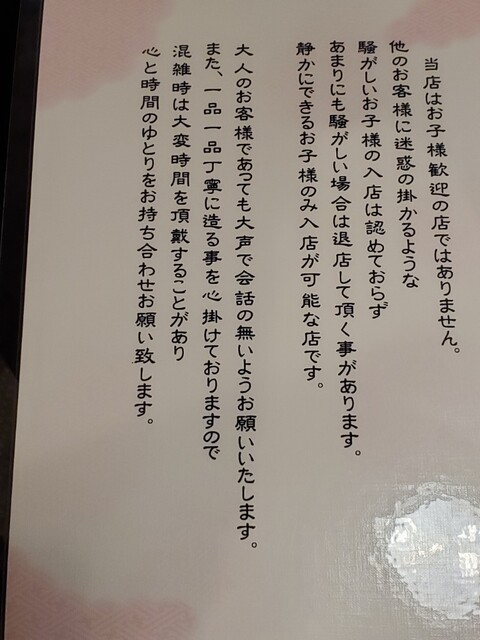 当店はお子様歓迎の店ではありません。
他のお客様に迷惑の掛かるような
騒がしいお子様の入店は認めておらず
あまりにも騒がしい場合は退店して頂く事があります。
静かにできるお子様のみ入店が可能な店です。
大人のお客様であっても大声で会話の無いようお願いいたします。
また、一品一品丁寧に造る事を心掛けておりますので
混雑時は大変時間を頂戴することがあり
心と時間のゆとりをお持ち合わせお願い致します。